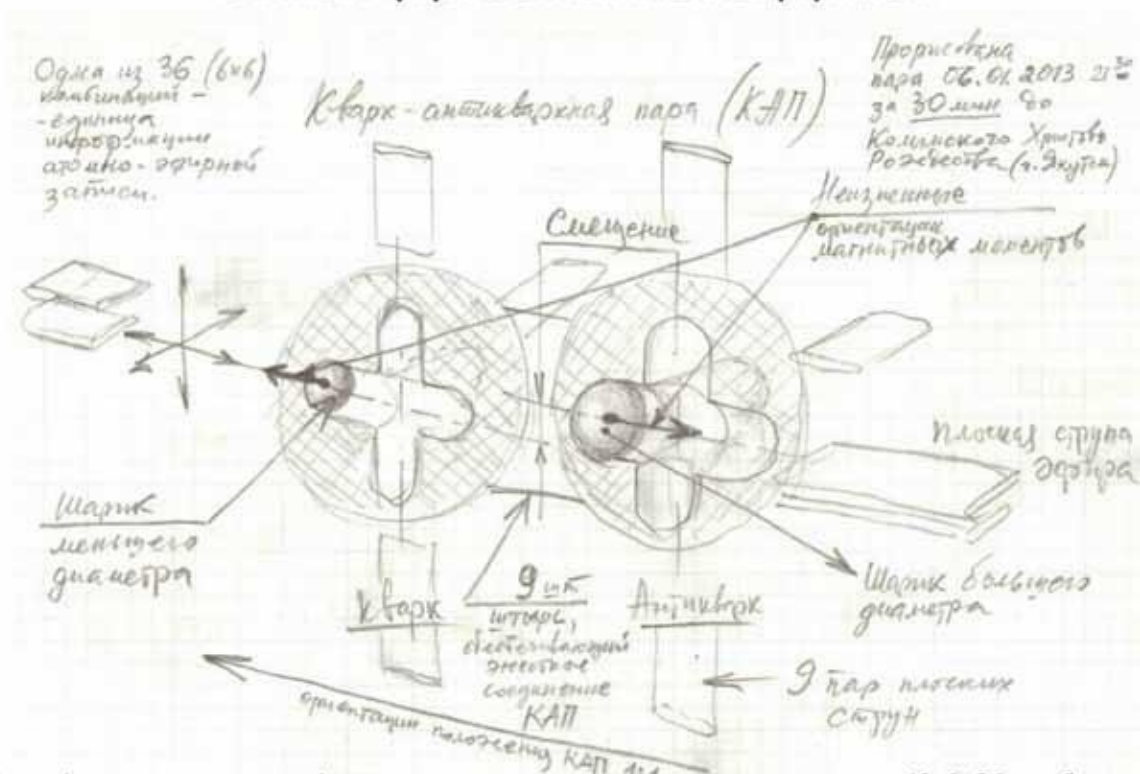 Одна из 36 (6х6)
комбинаций –
- единица
информации
атомно-эфирной
записи.
Кварк-антикваркная пара (КАП)
Прорисована
пара 06.01.2013 21 30
за 30 мин до
Христова
Рождества (г. Якутск)
Неизменные
ориентации
магнитных моментов
Смещение
Плоская струна
эфира
Шарик
меньшего
диаметра
Кварк
9 шт
штырь,
обеспечивающий
жесткое
соединение
КАП
Антикварк
Шарик большего
диаметра
9 пар плоских
струн
ориентации положения КАП